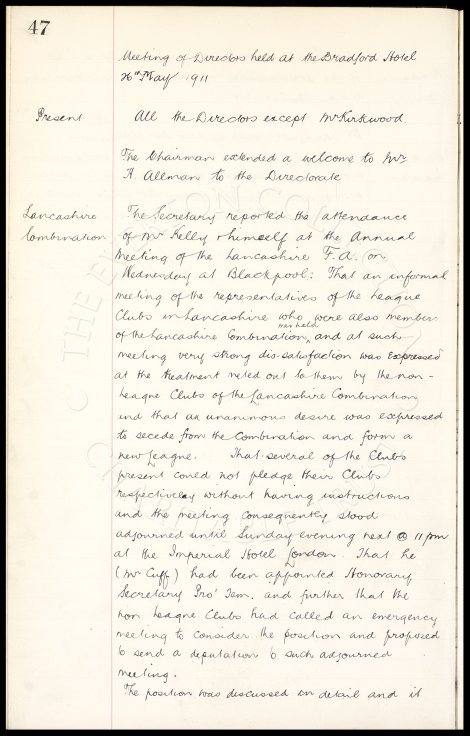 47
Meeting of Directors held at the Bradford Hotel
26th May 1911
Present All the Directors except Mr Kirkwood.
The Chairman extended a welcome to Mr
A. Allman to the Directorate
Lancashire The Secretary reported the attendance
Combination of Mr Kelly & himself at the Annual
Meeting of the Lancashire F.A. on
Wednesday at Blackpool: That an informal
meeting of the representatives of the League
Clubs in Lancashire who were also members
was held
of the Lancashire Combination, and at such
meeting very strong dis-satisfaction was expressed
at the treatment meted out to them by the non-
League Clubs of the Lancashire Combination
and that an unanimous desire was expressed
to secede from the Combination and form a
new League. That several of the Clubs
present could not pledge their Clubs
respectively without having instructions
and the meeting consequently stood
adjourned until Sunday evening next @ 11 pm
at the Imperial Hotel London. That he
(Mr Cuff) had been appointed Honorary
Secretary Pro' Tem. and further that the
non League Clubs had called an emergency
meeting to consider the position and proposed
to send a deputation to such adjourned
meeting.
The position was discussed in detail and it